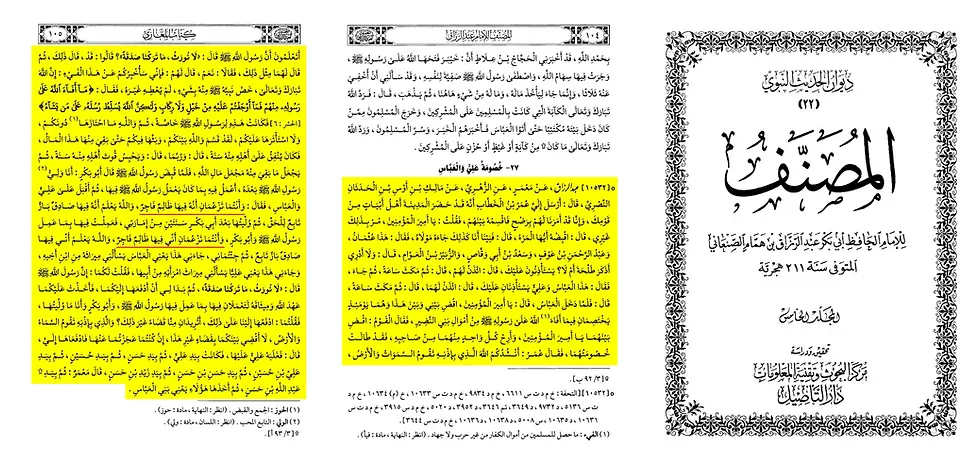 ديوان الحديث النبوي
(٢٢)
المصنف
للإمام الحافظ أبي بكر عبد الرزاق بن همام الصنعاني
المتوفى سنة ٢١١ هجرية
المجلد الخامس
تحقيق ودراسة
مركز البحوث وتقنية المعلومات
دار التأصيل
١٠٤
المصنف للإمام عبد الرزاق
بحمد الله، قد أخبرني الحجاج بن علاط أن خيبر فتحها الله على رسوله ﷺ،
وجرت فيها سهام الله، واصطفى رسول الله ﷺ صفية لنفسه، وقد سألني أن أخفي
عنه ثلاثا، وإنما جاء ليأخذ ماله، وما له من شيء هاهنا، ثم يذهب، قال: فرد الله
تبارك وتعالى الكآبة التي كانت بالمسلمين على المشركين، وخرج المسلمون ممن
كان دخل بيته مكتئبا حتى أتوا العباس فأخبرهم الخبر، وسر المسلمون، ورد الله
تبارك وتعالى ما كان من كآبة أو غيظ أو حزن على المشركين.
٢٧- خصومة علي والعباس
[١٠٥٣٢] عبد الرزاق، عن معمر، عن الزهري، عن مالك بن أوس بن الحدثان
النصري، قال: أرسل إلي عمر بن الخطاب أنه قد حضر المدينة أهل أبيات من
قومك، وإنا قد أمرنا لهم برضخ فاقسمه بينهم، فقلت: يا أمير المؤمنين، مر بذلك
غيري، قال: اقبضه أيها المرء، قال: فبينا أنا كذلك جاءه مولاه، فقال: هذا عثمان،
وعبد الرحمن بن عوف، وسعد بن أبي وقاص، والزبير بن العوام، قال: ولا أدري
أذكر طلحة أم لا؟ يستأذنون عليك، قال: ائذن لهم، قال: ثم مكث ساعة، ثم جاء،
فقال: هذا العباس وعلي يستأذنان عليك، قال: ائذن لهما، قال: ثم مكث ساعة،
قال: فلما دخل العباس، قال: يا أمير المؤمنين، اقض بيني وبين هذا وهما يومئذ
يختصمان فيما أفاء (١) الله على رسوله ﷺ من أموال بني النضير، فقال القوم: اقض
بينهما يا أمير المؤمنين، وأرح كل واحد منهما من صاحبه، فقد طالت
خصومتهما، فقال عمر: أنشدكم الله الذي بإذنه تقوم السموات والأرض،
[٣/ ٩٢ ب].
(١) الفيء: ما حصل للمسلمين من أموال الكفار من غير حرب ولا جهاد. (انظر: النهاية، مادة: فيأ).
كتاب المغازي
١٠٥
أتعلمون أن رسول الله ﷺ قال: «لا نورث، ما تركنا صدقة»؟ قالوا: قد قال ذلك، ثم
قال لهما مثل ذلك، فقالا: نعم، قال لهم: فإني سأخبركم عن هذا الفيء: إن الله
تبارك وتعالى، خص نبيه ﷺ منه بشيء، لم يعطه غيره، فقال: ﴿ما أفاء الله على
رسوله منهم فما أوجفتم عليه من خيل ولا ركاب ولكن الله يسلط رسله على من يشاء﴾
[الحشر: ٦] فكانت هذه لرسول الله ﷺ خاصة، ثم والله ما احتازها (١) دونكم،
ولا استأثرها عليكم، لقد قسم والله بينكم، وبثها فيكم حتى بقي منها هذا المال،
فكان ينفق على أهله منه سنة، قال: وربما قال: ويحبس قوت أهله منه سنة، ثم
يجعل ما بقي منه مجعل مال الله، فلما قبض رسول الله ﷺ قال أبو بكر: أنا ولي (٢)
رسول الله ﷺ بعده، أعمل فيه بما كان يعمل رسول الله ﷺ فيها، ثم أقبل على علي
والعباس، فقال: وأنتما تزعمان أنه فيها ظالم فاجر، والله يعلم أنه فيها صادق بار
تابع للحق، ثم وليتها بعد أبي بكر سنتين من إمارتي، فعملت فيها بما عمل
رسول الله ﷺ وأبو بكر، وأنتما تزعمان أني فيها ظالم فاجر، والله يعلم أني فيها
صادق بار تابع، ثم جئتماني، جاءني هذا يعني العباس يسألني ميراثه من ابن أخيه،
وجاءني هذا يعني عليا يسألني ميراث امرأته من أبيها، فقلت لكما: إن رسول الله ﷺ
قال: «لا نورث، ما تركنا صدقة»، ثم بدا لي أن أدفعها إليكما، فأخذت عليكما
عهد الله وميثاقه لتعملان فيها بما عمل فيها رسول الله ﷺ، وأبو بكر وأنا ما وليتها،
فقلتما: ادفعها إلينا على ذلك، أتريدان منا قضاء غير ذلك؟ والذي بإذنه تقوم السماء
والأرض، لا أقضي بينكما بقضاء غير هذا، إن كنتما عجزتما عنها فادفعاها إلي،
قال: فغلبه علي عليها، فكانت بيد علي، ثم بيد حسن، ثم بيد حسين، ثم بيد
علي بن حسين، ثم بيد حسن بن حسن، ثم بيد زيد بن حسن، قال معمر: ثم بيد
عبد الله بن حسن، ثم أخذها هؤلاء يعني بني العباس.
(١) الحوز: الجمع والقبض. (انظر: النهاية، مادة: حوز).
(٢) الولي: التابع المحب. (انظر: اللسان، مادة: ولي).
[٣/ ٩٣ أ].